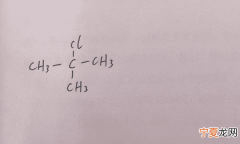 Cl
CH₃—C—CH₃
CH₃
宁夏龙网